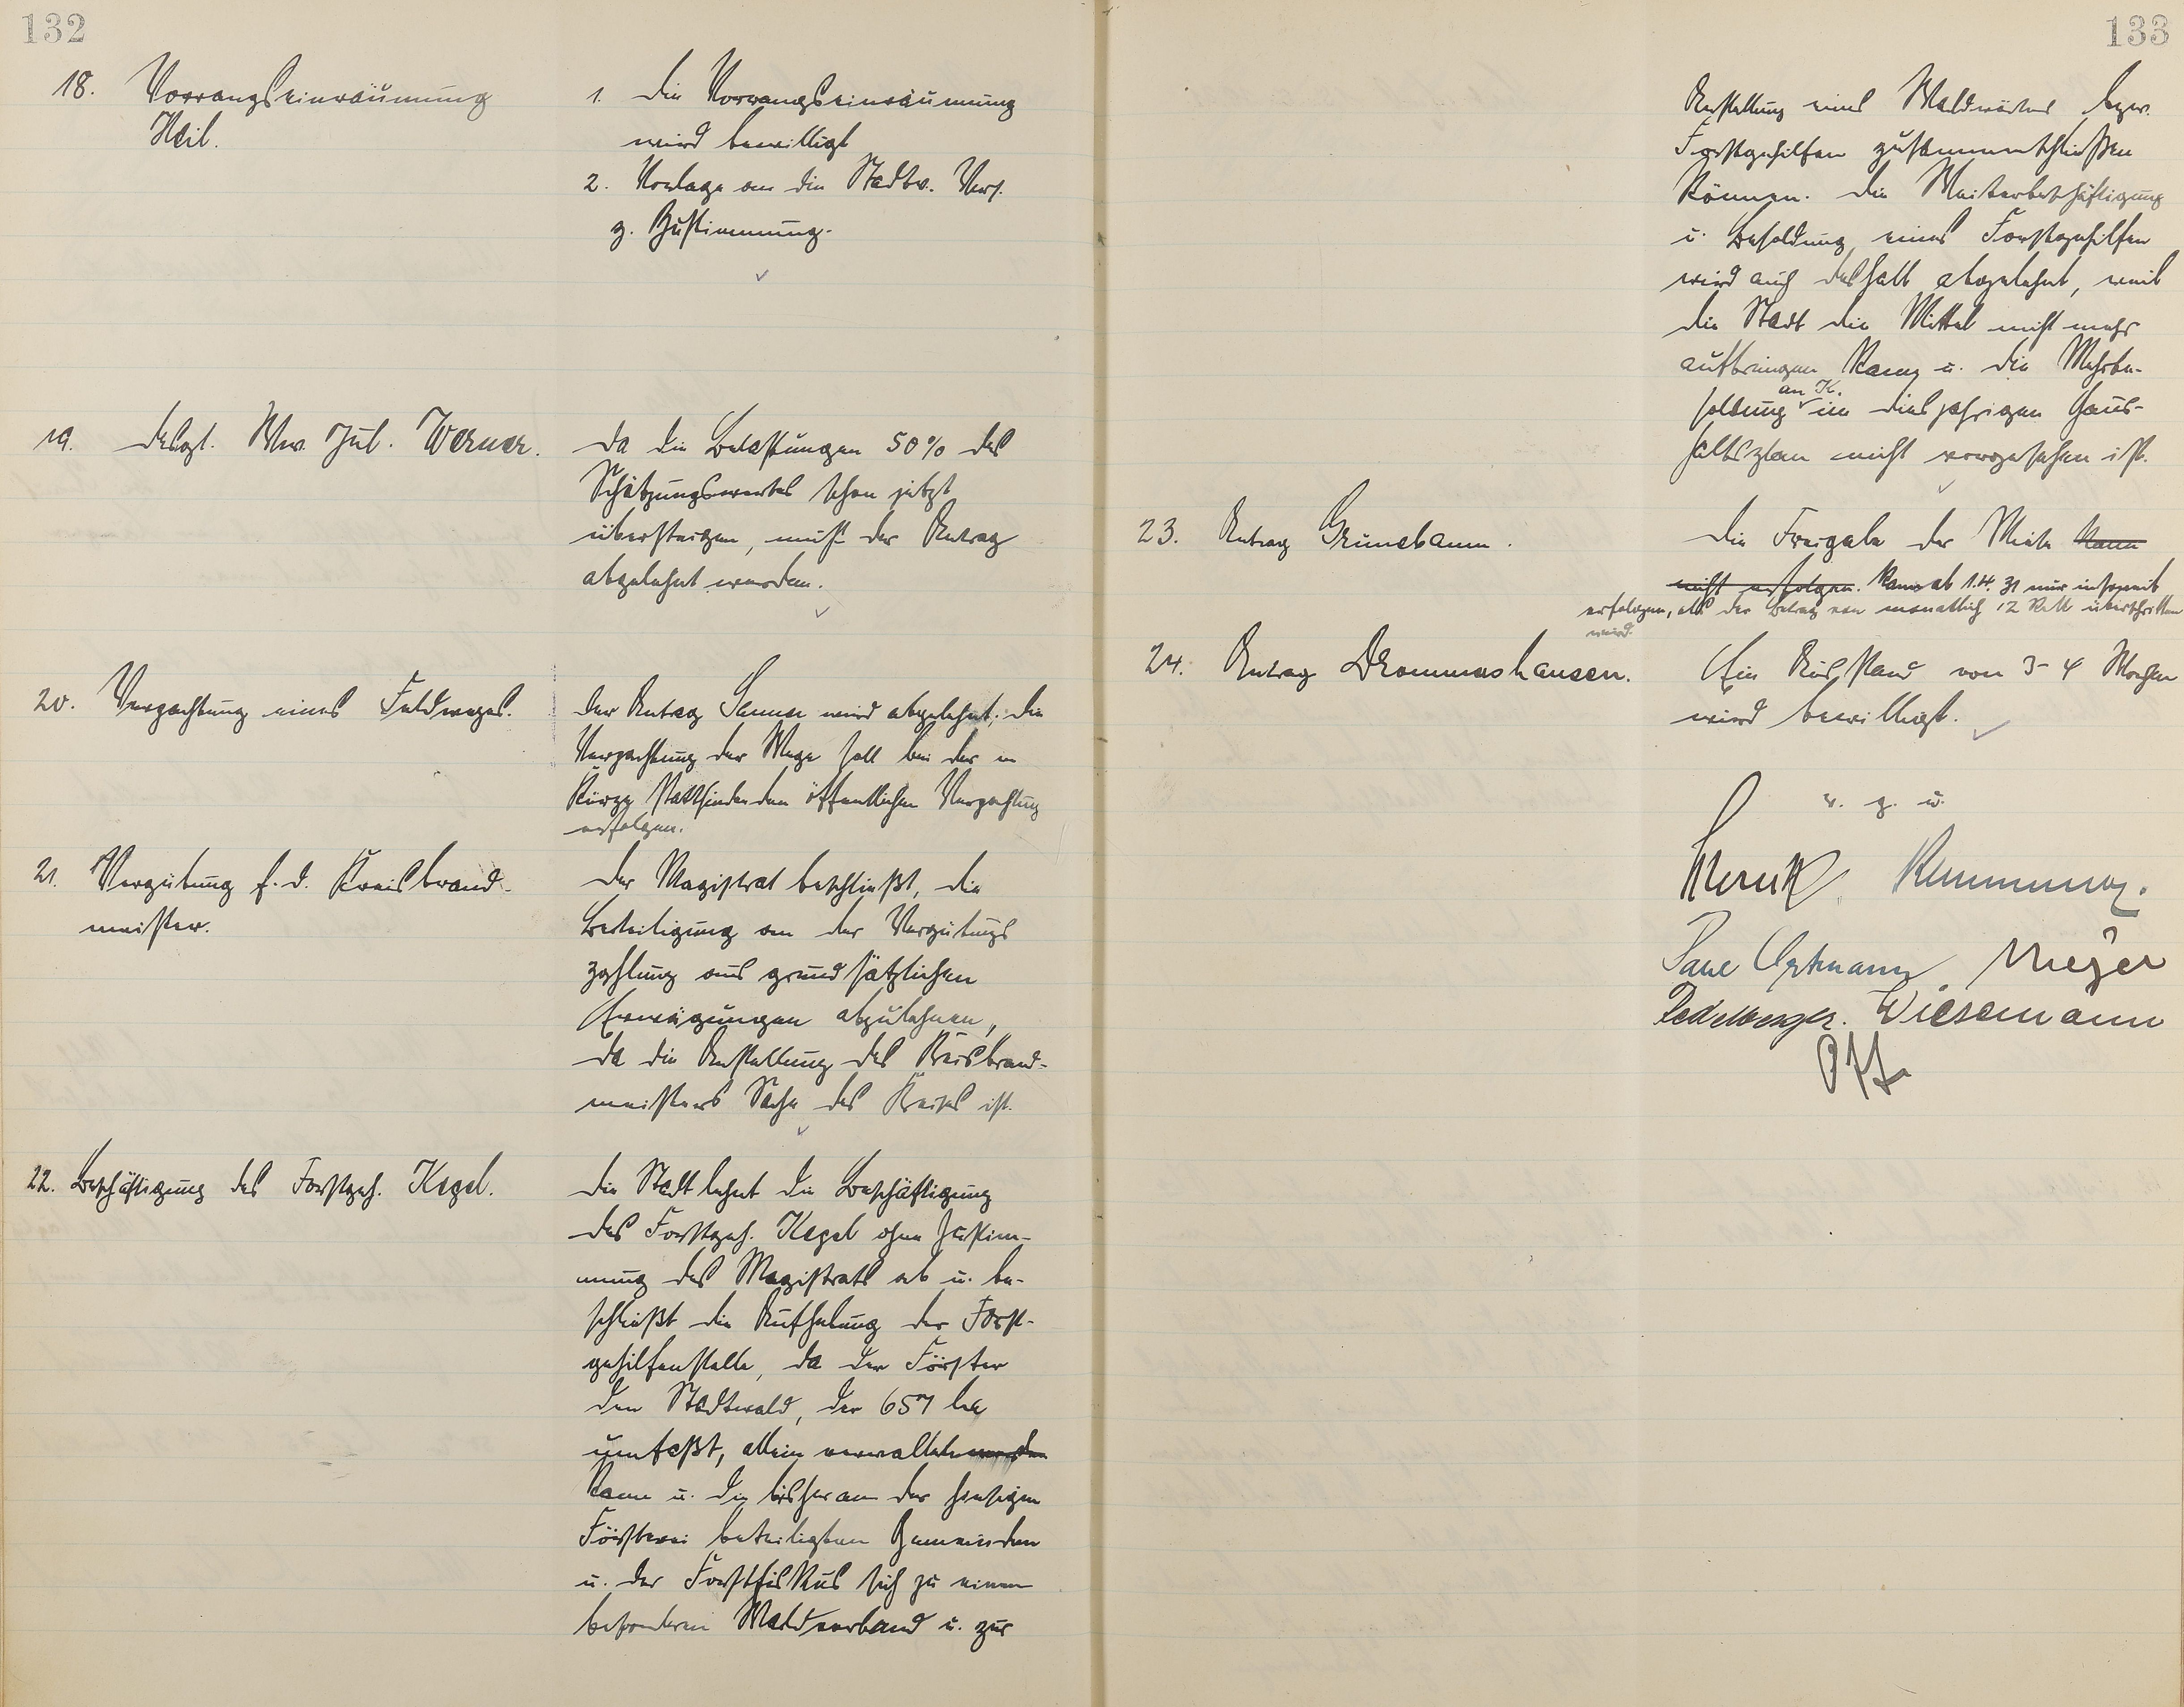 132
18. Vorrangseinräumung
Heil.
1. Die Vorrangseinräumung
wird bewilligt
2. Vorlage an die Stadtv. Vers.
z. Zustimmung.
19. desgl. Ww. Jul. Werner.
Da die Belastungen 50% des
Schätzungswertes schon jetzt
übersteigen, muß der Antrag
abgelehnt werden.
20. Verpachtung eines Feldweges.
Der Antrag wird abgelehnt; die
Verpachtung der Wege soll bei der in
Kürze stattfindenden öffentlichen Verpachtung
erfolgen.
21. Vergütung f. d. Kreisbrand-
meister.
Der Magistrat beschließt, die
Beteiligung an der Vergütungs
zahlung aus grundsätzlichen
Erwägungen abzulehnen,
da die Anstellung des Kreisbrand-
meisters Sache des Kreises ist.
22. Beschäftigung des Forstgeh. Kegel.
Die Stadt lehnt die Beschäftigung
des Forstgeh. Kegel ohne Zustim-
mung des Magistrats ab u. be-
schließt die Aufhebung der Forst-
gehilfenstelle, da der Förster
den Stadtwald, der 657 ha
umfaßt, allein verwalten
kann u. die bisher an der hiesigen
Försterei beteiligten Gemeinden
u. der Forstfiskus sich zu einem
besonderen Waldverband u. zur
133
Anstellung eines Waldwärters bezw.
Forstgehilfen zusammenschließen
können. Die Weiterbeschäftigung
u. Besoldung eines Forstgehilfen
wird auch deshalb abgelehnt, weil
die Stadt die Mittel nicht mehr
aufbringen kann u. die Mehrbe-
an K.
soldung im diesjährigen Haus-
haltsplan nicht vorgesehen ist.
23. Antrag Grünebaum.
Die Freigabe der Miete kann
nicht erfolgen. Kann ab 1.4.31 nur insoweit
erfolgen, als der Betrag von monatlich 12 RM überschritten
wird.
24. Antrag Drommershausen.
Ein Ausstand von 3-4 Wochen
wird bewilligt.
v. g. u.
Paul Ortmann Meyer
Wiesemann